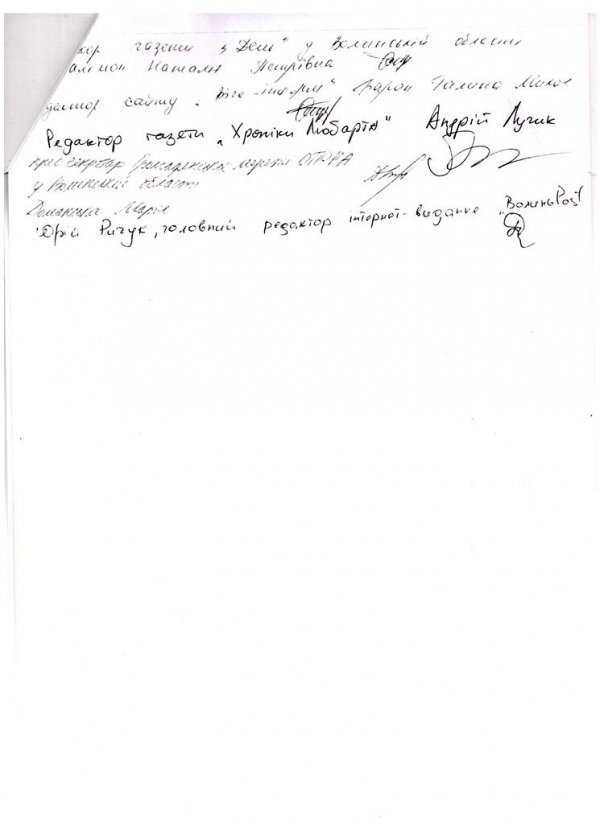 кор газети „День" у Волинській області
Наталія Петрівна
сайту „Віче-інформ" Галина
Редактор газети „Хроніки Любарта" Андрій Лучик
прес секретар Громадянської мережі ОПОРА
у Волинській області
Марія
Юрій Ричук, головний редактор інтернет-видання „ВолиньPost